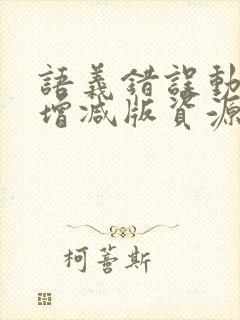 語義錯誤動
增減版資源
柯薏斯